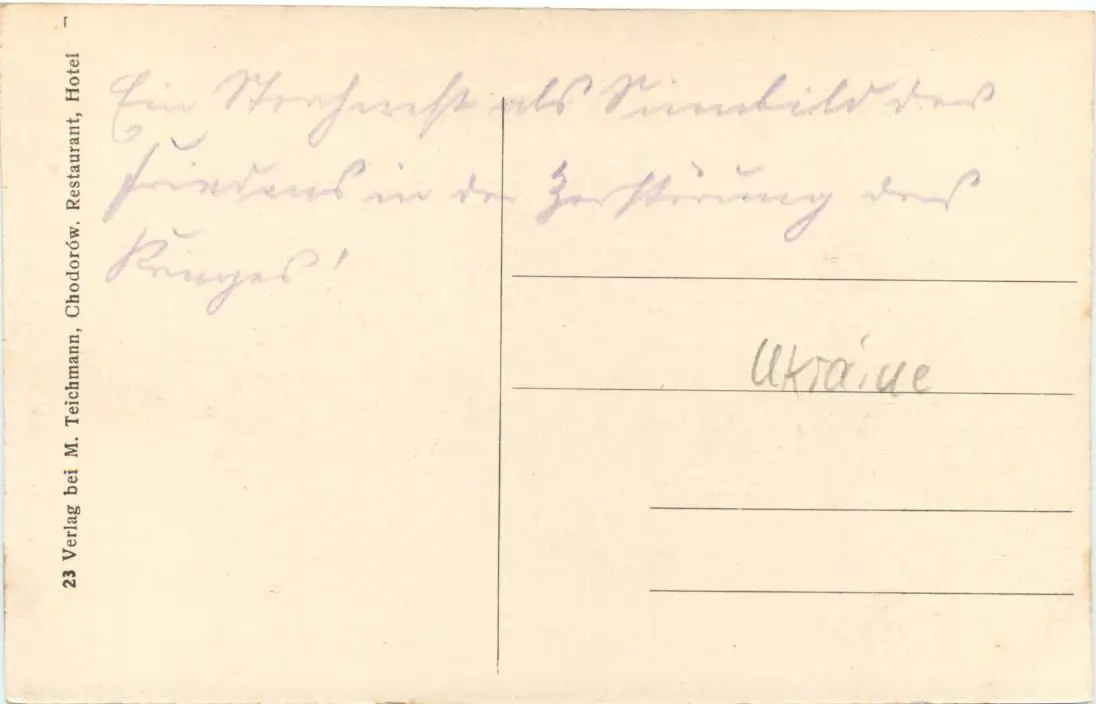 Ein Storchnest als Sinnbild des
Friedens in der Zerstörung des
Krieges!
Ukraine
23 Verlag bei M. Teichmann, Chodorów. Restaurant, Hotel